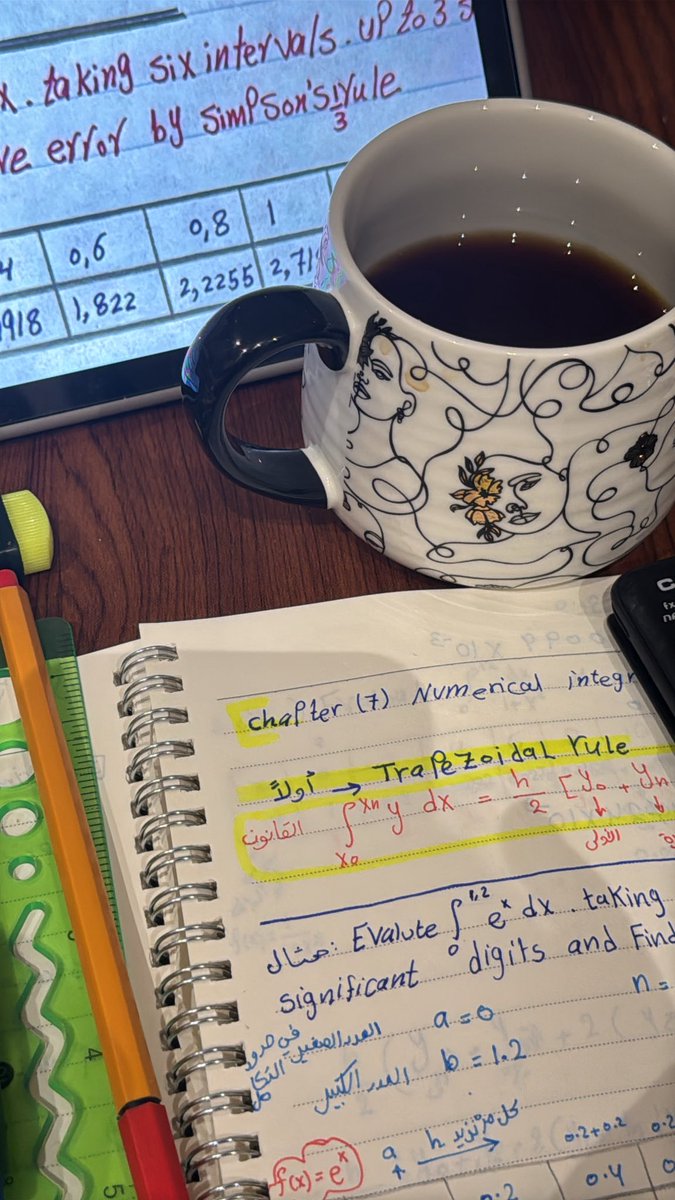 x. taking six intervals. up to 3 s
ve error by simpson's 1/3 rule
4 0,6 0,8 1
918 1,822 2,2255 2,71
chapter (7) Numerical integr
أولاً → Trapezoidal rule
القانون ∫ xn x0 y dx = h/2 [y0 + yn
الأولى
مثال: Evalute ∫ 1,2 0 e^x dx. taking
significant digits and Find
n =
العدد الصغير في حدود التكامل a = 0
العدد الكبير b = 1.2
f(x) = e^x a h كل مرة نزيد → 0.2+0.2 0.2
0.2 0.4
4
5